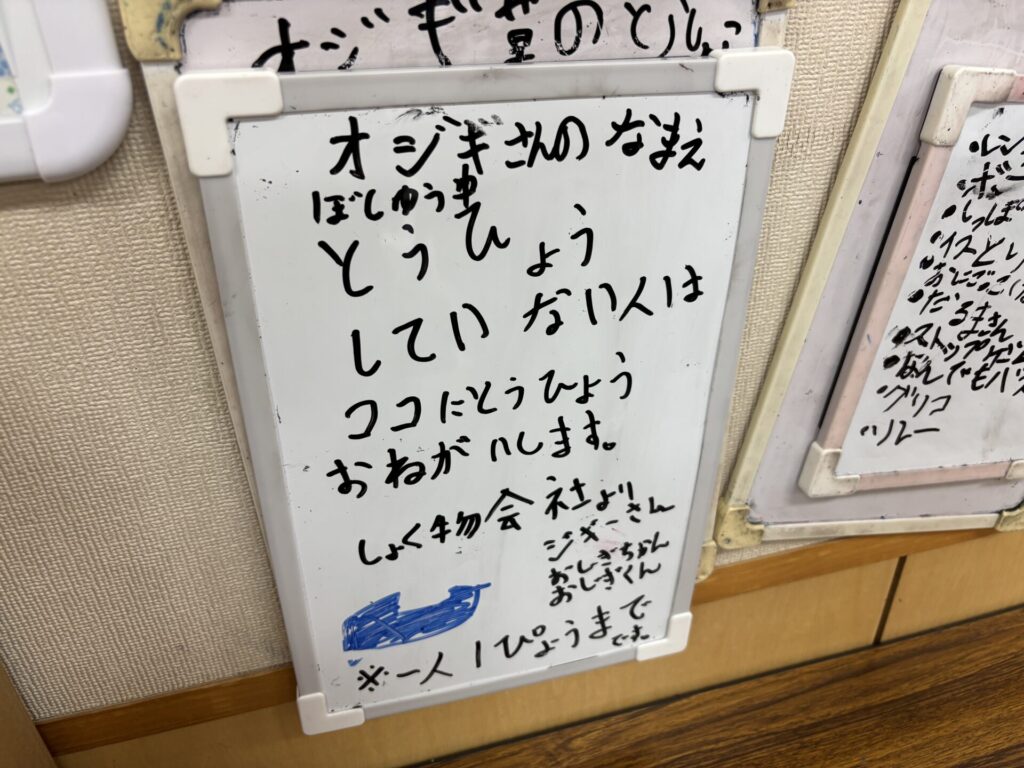 オジギ草のとうひょう
オジギさんのなまえ
ぼしゅう中
とうひょう
していない人は
ココにとうひょう
おねがいします。
しょく物会社より
ジギーさん
おじぎちゃん
おじぎくん
※一人1ぴょうまで
です。
・しっぽ
・イスと
・だるまさん
・ストップ
・なんでもバス
・グリコ
・リレー